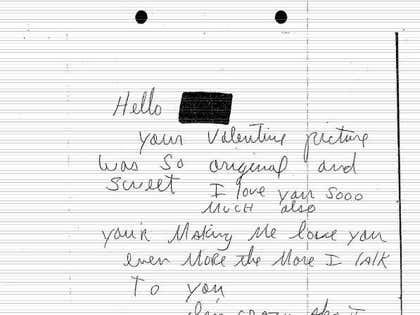 Hello
your Valentine picture
was so original and
sweet I love you sooo
much also
you'r Making Me love you
even More the More I talk
To you
crazy about